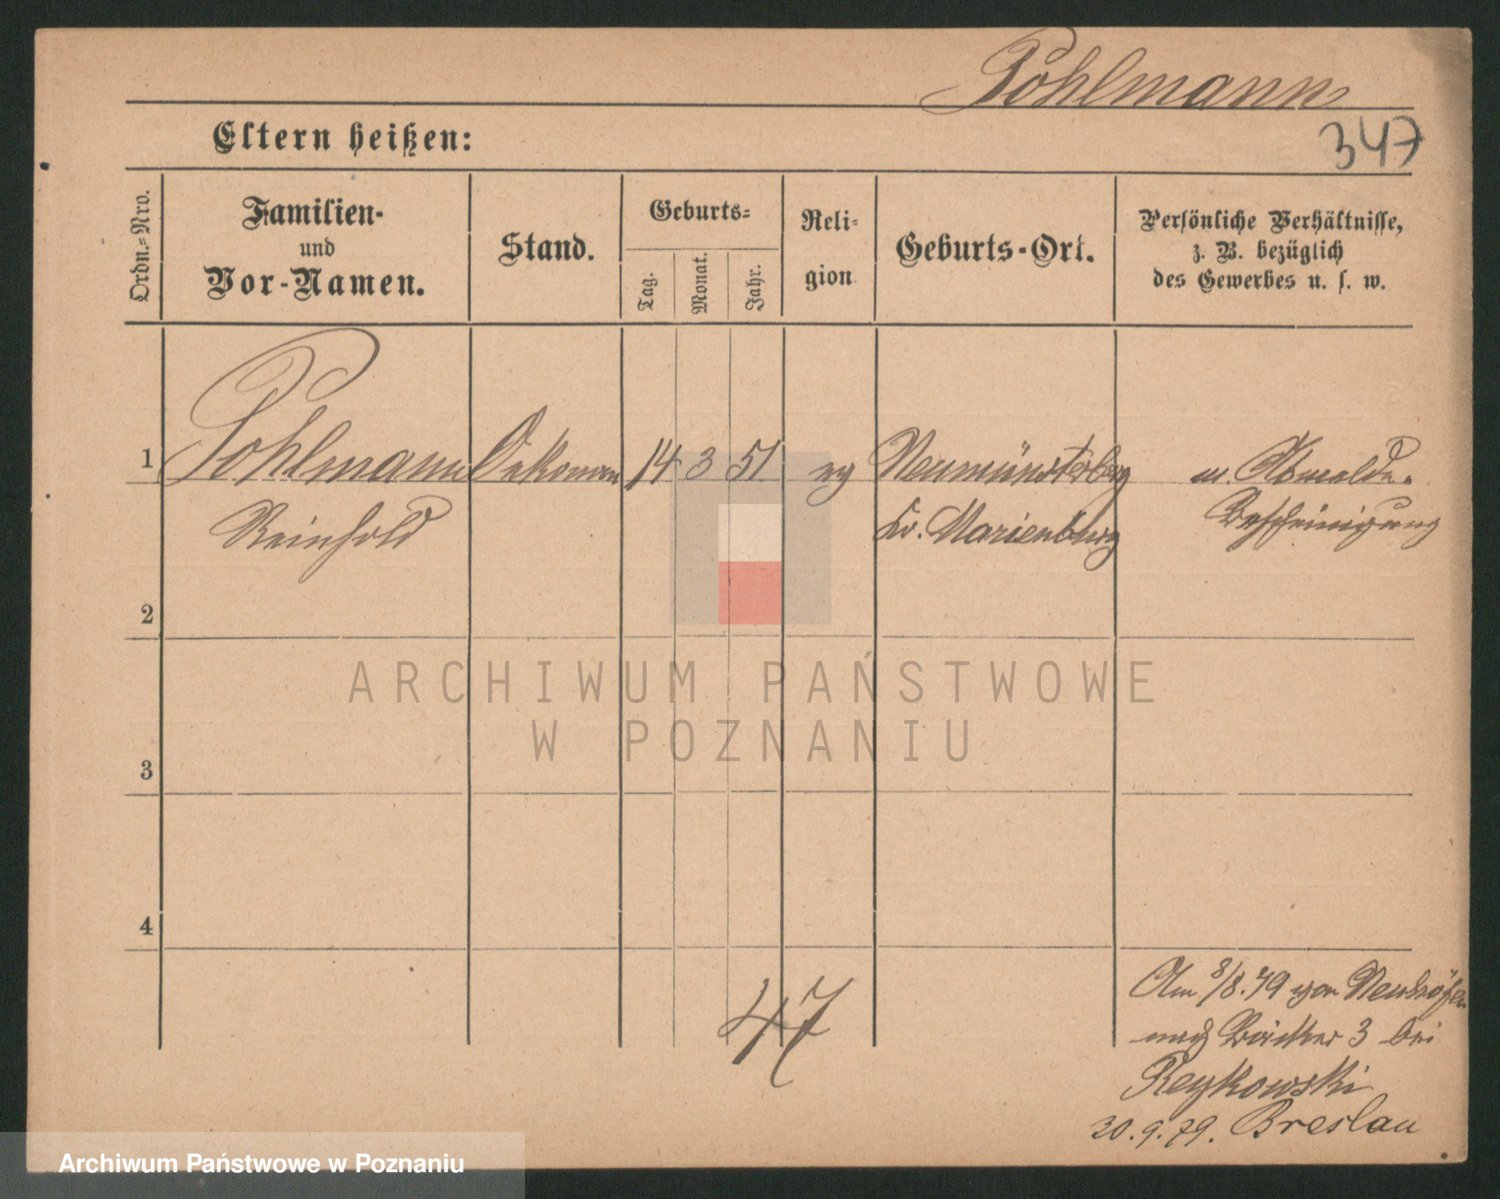 Pohlmann
347
Eltern heißen:
Ordn.=Nro.
Familien-
und
Vor-Namen.
Stand.
Geburts=
Tag.
Monat.
Jahr.
Reli-
gion
Geburts-Ort.
Persönliche Verhältnisse,
z. B. bezüglich
des Gewerbes u. s. w.
1 Pohlmann Oekonom 14 3 51 ev Neumünsterberg m. Abmelde-
Reinhold Kr. Marienburg Bescheinigung
2
3
4
47
Am 8/8. 79 von Neuhöfen
nach Bäcker 3 bei
Reykowski
30. 9. 79. Breslau
ARCHIWUM PAŃSTWOWE
W POZNANIU
Archiwum Państwowe w Poznaniu